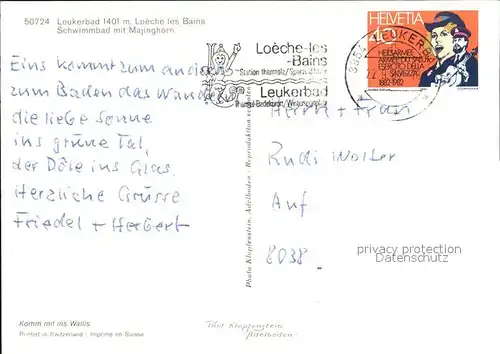 50724 Leukerbad 1401 m. Loèche les Bains
Schwimmbad mit Majinghorn
Eins kommt zum andern
zum Baden das Wandern
die liebe Sonne
ins grüne Tal,
der Dôle ins Glas.
Herzliche Grüsse
Friedel + Herbert
Loèche-les
-Bains
Station thermale/Sports d'hiver
Leukerbad
Thermal-Badekuren, Wintersportplatz
3954 LEUKERBAD
HELVETIA
40
HEILSARMEE
ARMÉE DU SALUT
ESERCITO DELLA
SALVEZZA
1882-1982
Herr + Frau
Rudi Wolter
Auf
8038.
privacy protection
watermark
Photo Klopfenstein, Adelboden - Reproduktion verboten
Komm mit ins Wallis
Printed in Switzerland - Imprimé en Suisse
Phot Klopfenstein
Adelboden